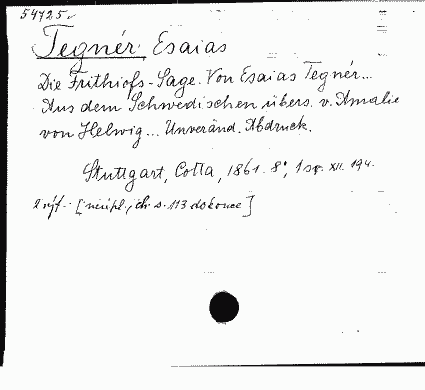 54725
Tegnér, Esaias
Die Frithiofs-Sage. Von Esaias Tegnér...
Aus dem Schwedischen übers. v. Amalie
von Helwig... Unveränd. Abdruck.
Stuttgart, Cotta, 1861. 8°, 1 sv. XII. 194.
[neúpl., ch. s. 113 do konce]